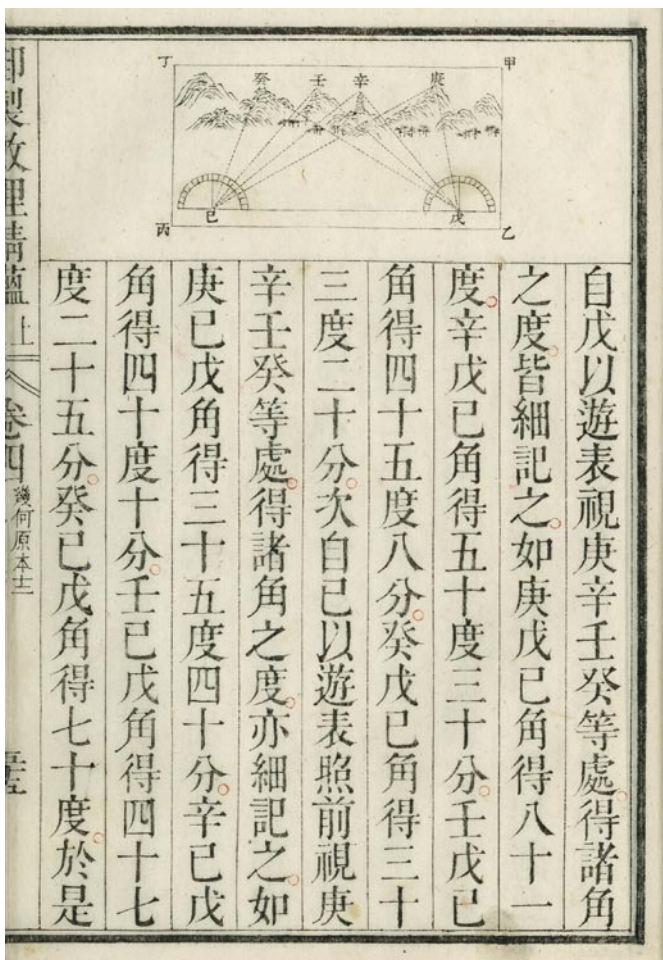 丁
甲
癸
壬
辛
庚
己
戊
丙
乙
自戊以遊表視庚辛壬癸等處得諸角
之度皆細記之如庚戊己角得八十一
度辛戊己角得五十度三十分壬戊己
角得四十五度八分癸戊己角得三十
三度二十分次自己以遊表照前視庚
辛壬癸等處得諸角之度亦細記之如
庚己戊角得三十五度四十分辛己戊
角得四十度十分壬己戊角得四十七
度二十五分癸己戊角得七十度於是
御製數理精蘊 上 卷四 幾何原本十二